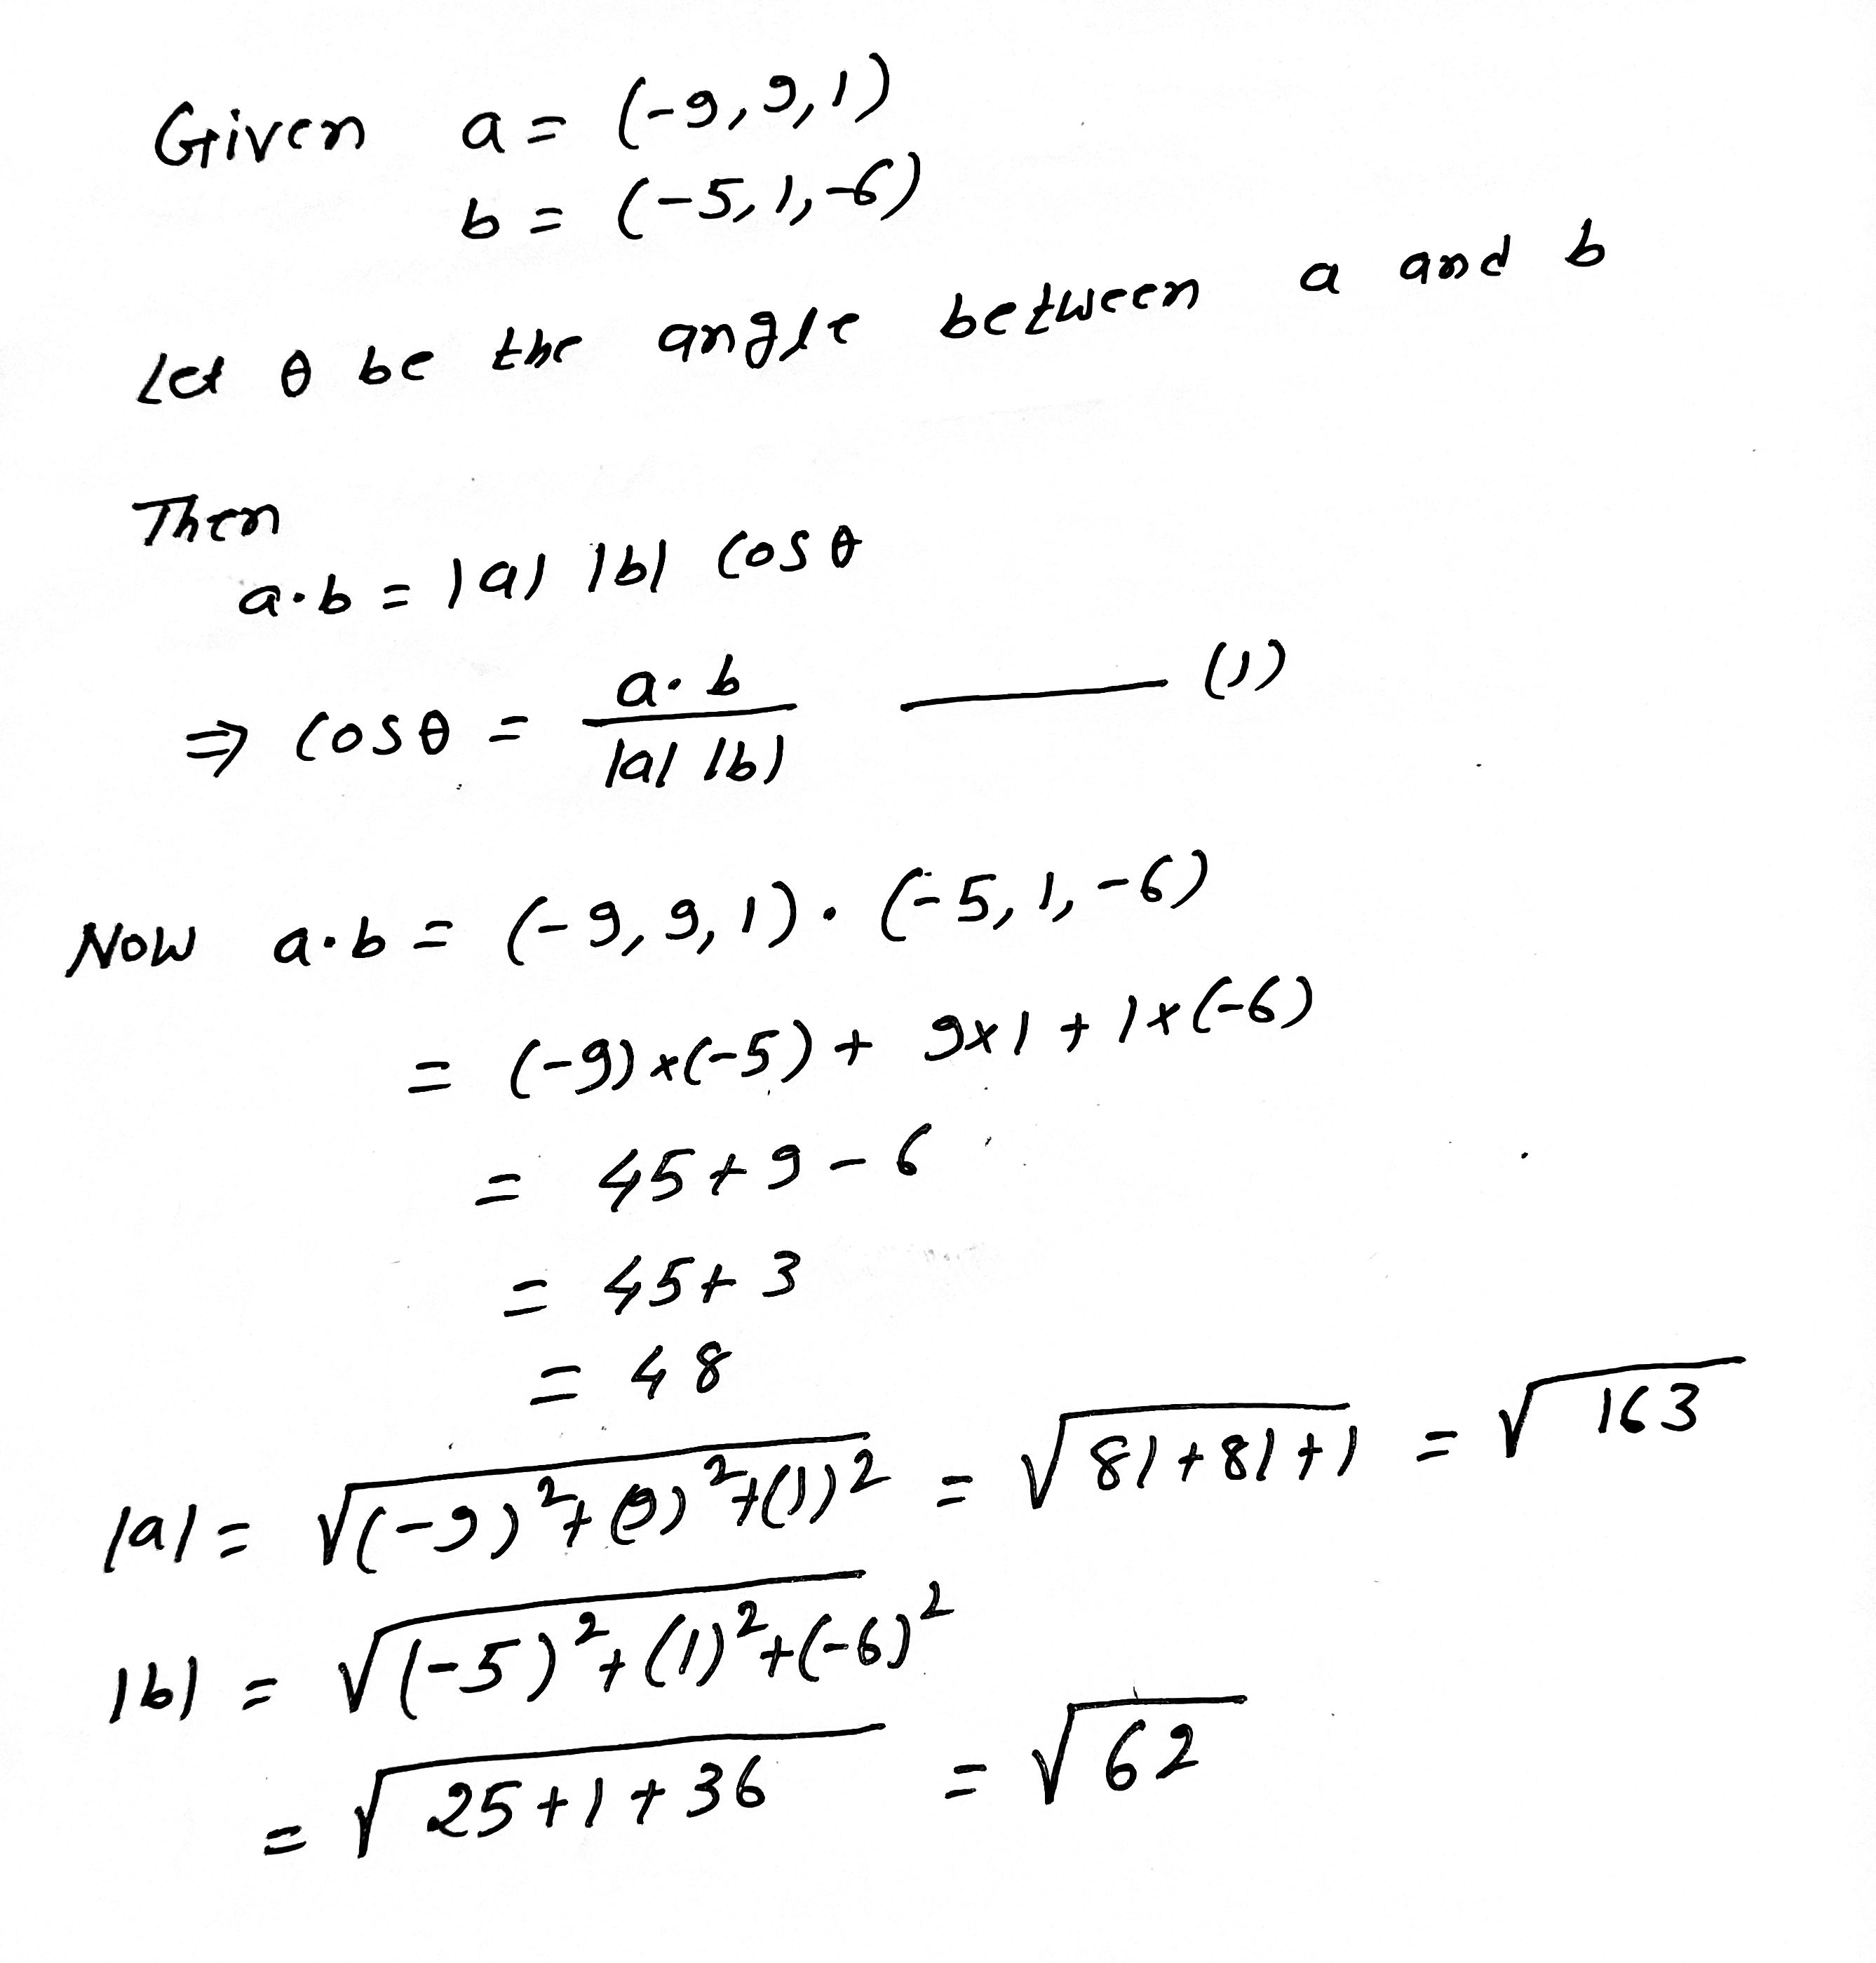 Given a = (-9, 9, 1)
b = (-5, 1, -6)
Let θ be the angle between a and b
Then
a·b = |a| |b| cosθ
⇒ cosθ = a·b / |a| |b| ——— (1)
Now a·b = (-9, 9, 1)· (-5, 1, -6)
= (-9)×(-5) + 9×1 + 1×(-6)
= 45+9-6
= 45+3
= 48
|a| = √((-9)²+(9)²+(1)²) = √(81+81+1) = √163
|b| = √((-5)²+(1)²+(-6)²)
= √(25+1+36) = √62